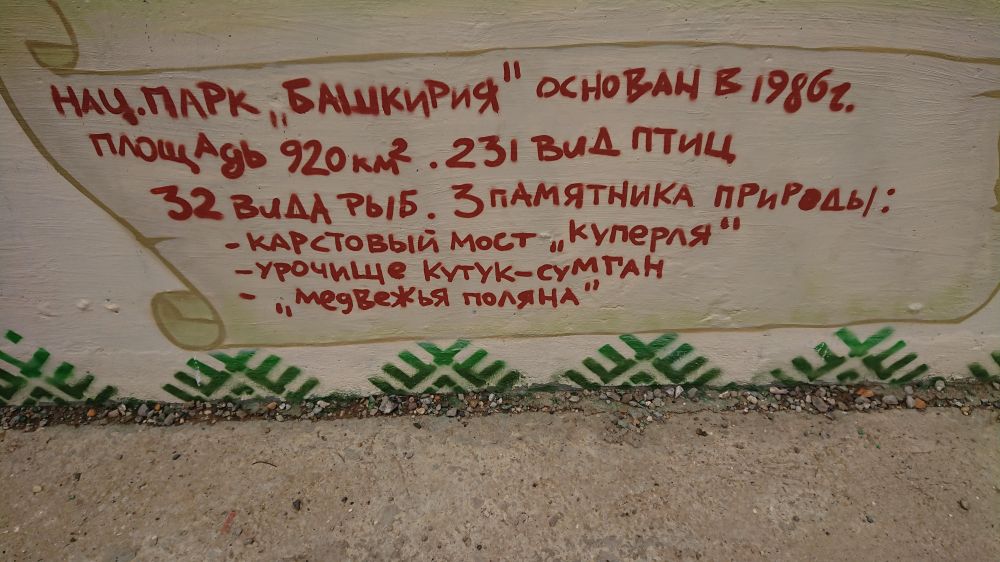 НАЦ. ПАРК „БАШКИРИЯ" ОСНОВАН В 1986г.
ПЛОЩАДЬ 920 км². 231 ВИД ПТИЦ
32 ВИДА РЫБ. 3 ПАМЯТНИКА ПРИРОДЫ:
- КАРСТОВЫЙ МОСТ „КУПЕРЛЯ"
- УРОЧИЩЕ КУТУК-СУМГАН
- „МЕДВЕЖЬЯ ПОЛЯНА"